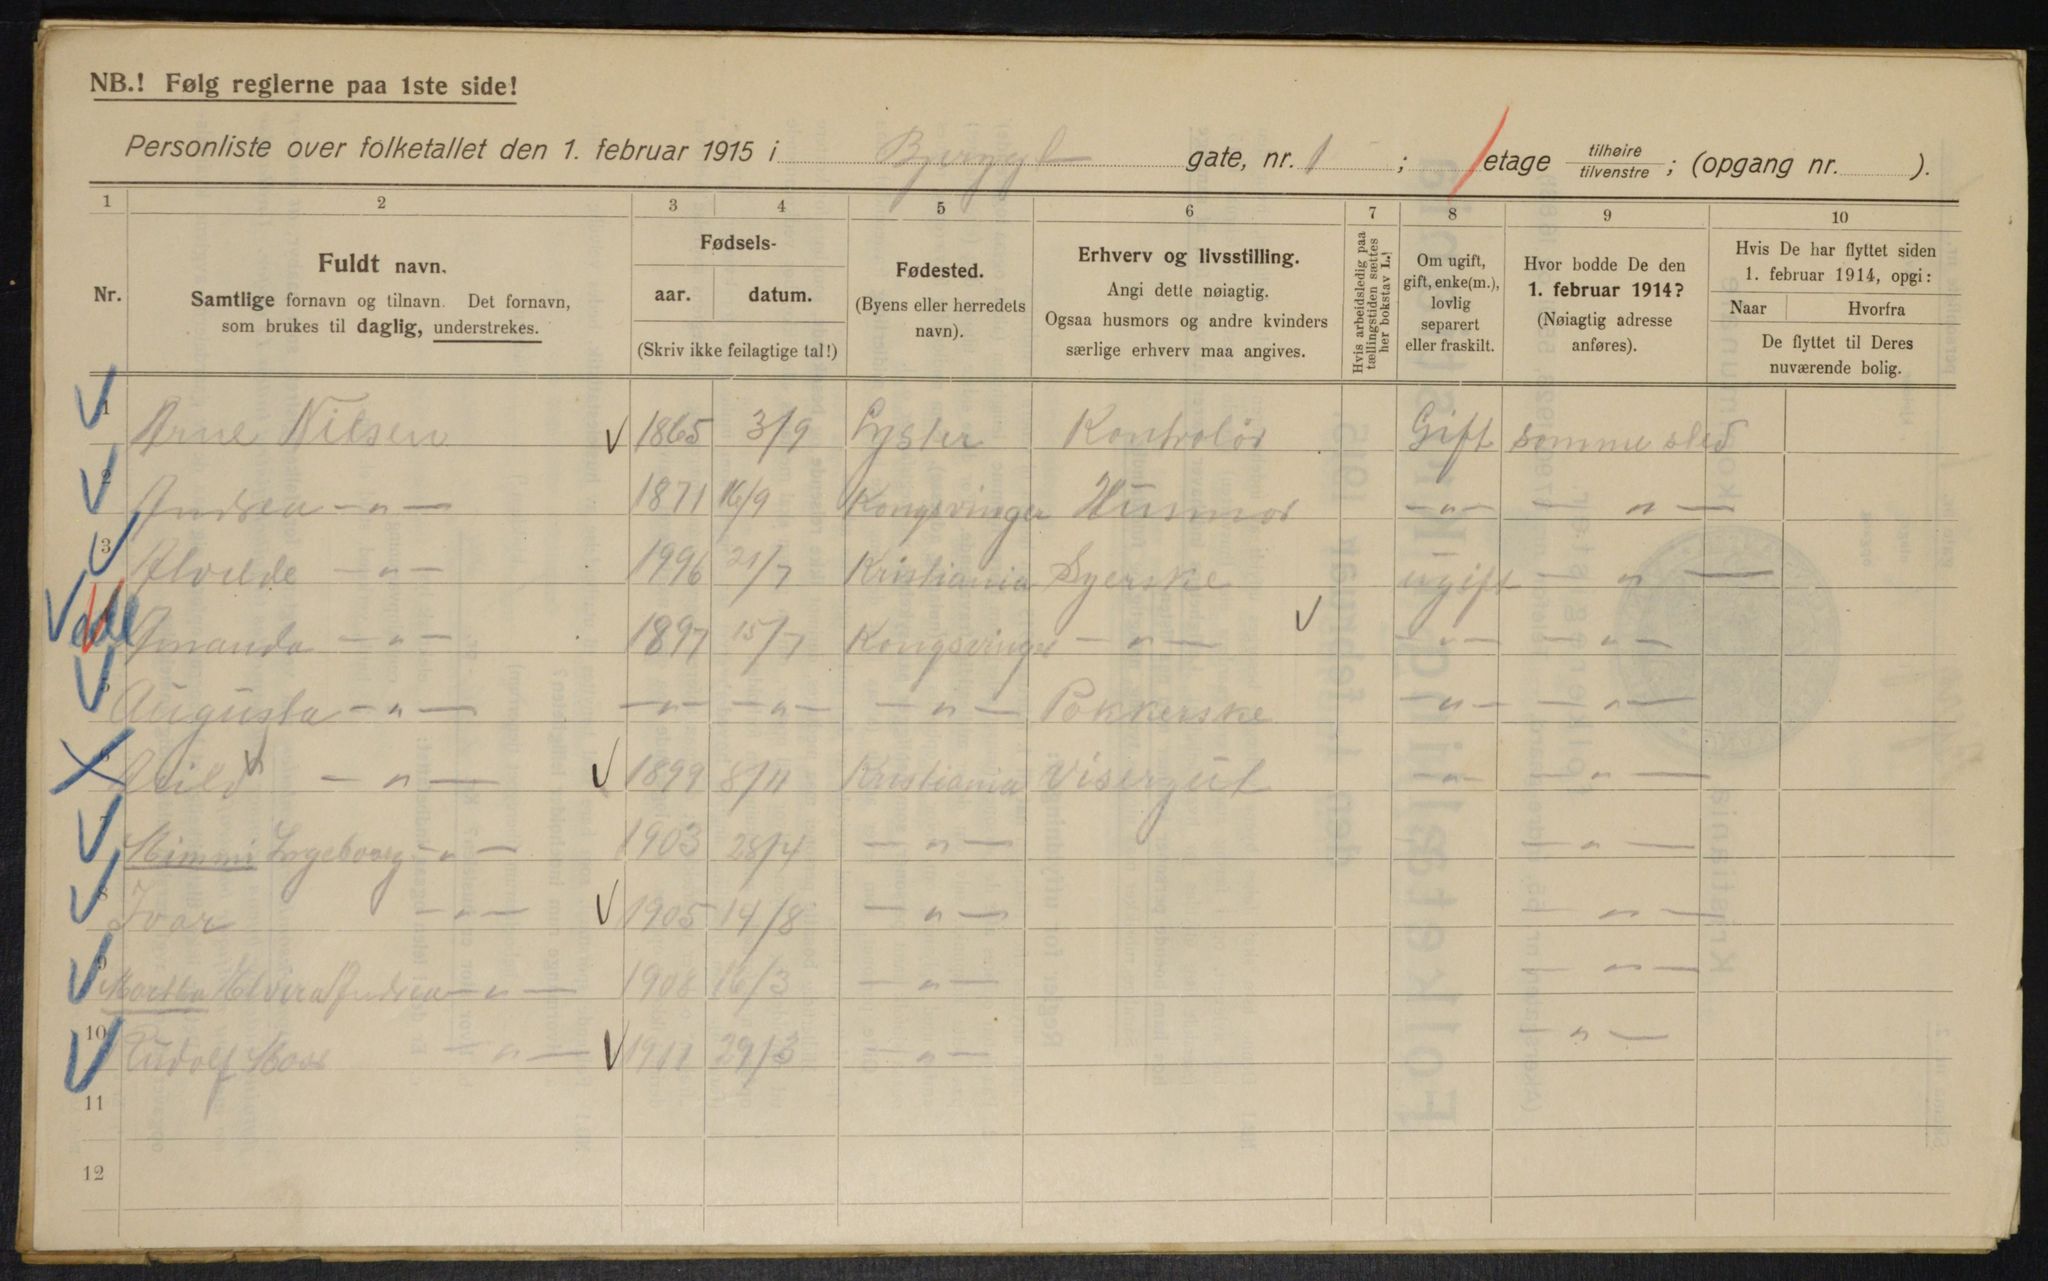 NB.! Følg reglerne paa 1ste side!
Personliste over folketallet den 1. februar 1915 i gate, nr. 1 ; 1 etage tilhøire tilvenstre ; (opgang nr. ).
1 2 3 4 5 6 7 8 9 10
Nr.
Fuldt navn.
Samtlige fornavn og tilnavn. Det fornavn,
som brukes til daglig, understrekes.
Fødsels-
aar. datum.
(Skriv ikke feilagtige tal!)
Fødested.
(Byens eller herredets
navn).
Erhverv og livsstilling.
Angi dette nøiagtig.
Ogsaa husmors og andre kvinders
særlige erhverv maa angives.
Hvis arbeidsledig paa
tællingstiden sættes
her bokstav L.!
Om ugift,
gift, enke(m.),
lovlig
separert
eller fraskilt.
Hvor bodde De den
1. februar 1914?
(Nøiagtig adresse
anføres).
Hvis De har flyttet siden
1. februar 1914, opgi:
Naar Hvorfra
De flyttet til Deres
nuværende bolig.
1 Arne Nilsen 1865 3/9 Lyster Kontrolør Gift samme sted
2 Andrea — " — 1871 16/9 Kongsvinger Husmor — " — — " —
3 Alvilde — " — 1996 21/7 Kristiania Syerske ugift " —
4 Amanda — " — 1897 15/7 Kongsvinger — " — — " — — " —
5 Augusta — " — — " — — " — — " — Pakkerske — " — — " —
6 Arild — " — 1899 8/4 Kristiania Visergut — " — — " —
7 Mimmi Ingeborg — " — 1903 28/4 — " — — " —
8 Ivar — " — 1905 14/8 — " — — " —
9 Martha Alvera Andrea — " — 1908 16/3 — " — — " —
10 Rudolf — " — 1911 29/3 — " — — " —
11
12